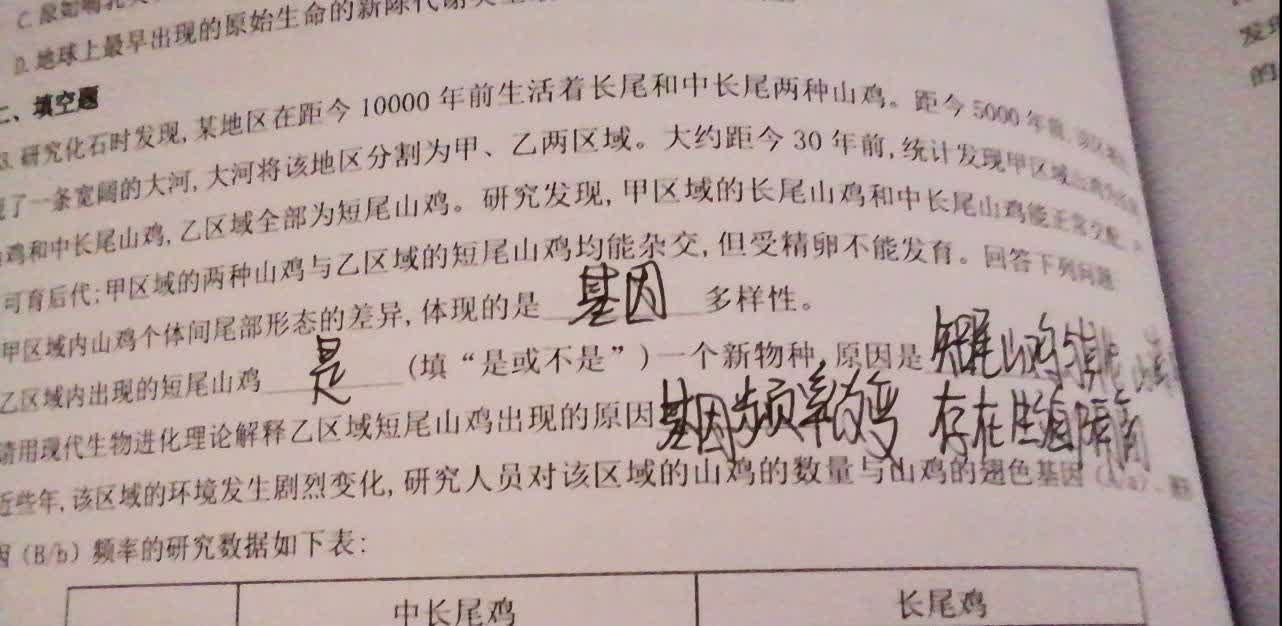 D. 地球上最早出现的原始生命的新陈代谢类
二、填空题
研究化石时发现,某地区在距今 10000 年前生活着长尾和中长尾两种山鸡。距今 5000 年前,
了一条宽阔的大河,大河将该地区分割为甲、乙两区域。大约距今 30 年前,统计发现甲区域
鸡和中长尾山鸡,乙区域全部为短尾山鸡。研究发现,甲区域的长尾山鸡和中长尾山鸡能正常交配,
可育后代;甲区域的两种山鸡与乙区域的短尾山鸡均能杂交,但受精卵不能发育。回答下列问题
甲区域内山鸡个体间尾部形态的差异,体现的是 基因 多样性。
乙区域内出现的短尾山鸡 是 (填“是或不是”)一个新物种,原因是 短尾山鸡与其他
请用现代生物进化理论解释乙区域短尾山鸡出现的原因 基因频率改变 存在生殖隔离
近些年,该区域的环境发生剧烈变化,研究人员对该区域的山鸡的数量与山鸡的翅色基因(A/a)、
因(B/b)频率的研究数据如下表:
中长尾鸡 长尾鸡
发
的